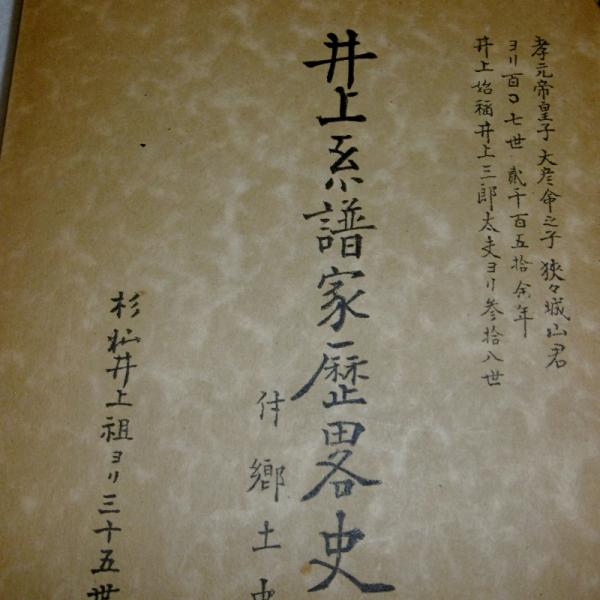 孝元帝皇子大彦命之子狹々城山君
ヨリ百〇七世貳千百五拾余年
井上始稱井上三郎太夫ヨリ参拾八世
井上系譜家歴畧史
付郷土史
杉山井上祖ヨリ三十五世